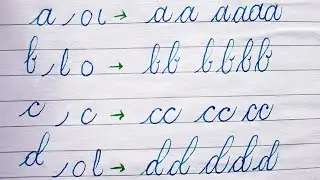 a , oι → aa aaaa
b , l o → bb bbbb
c , c → cc cc cc
d , o l → dd ddd